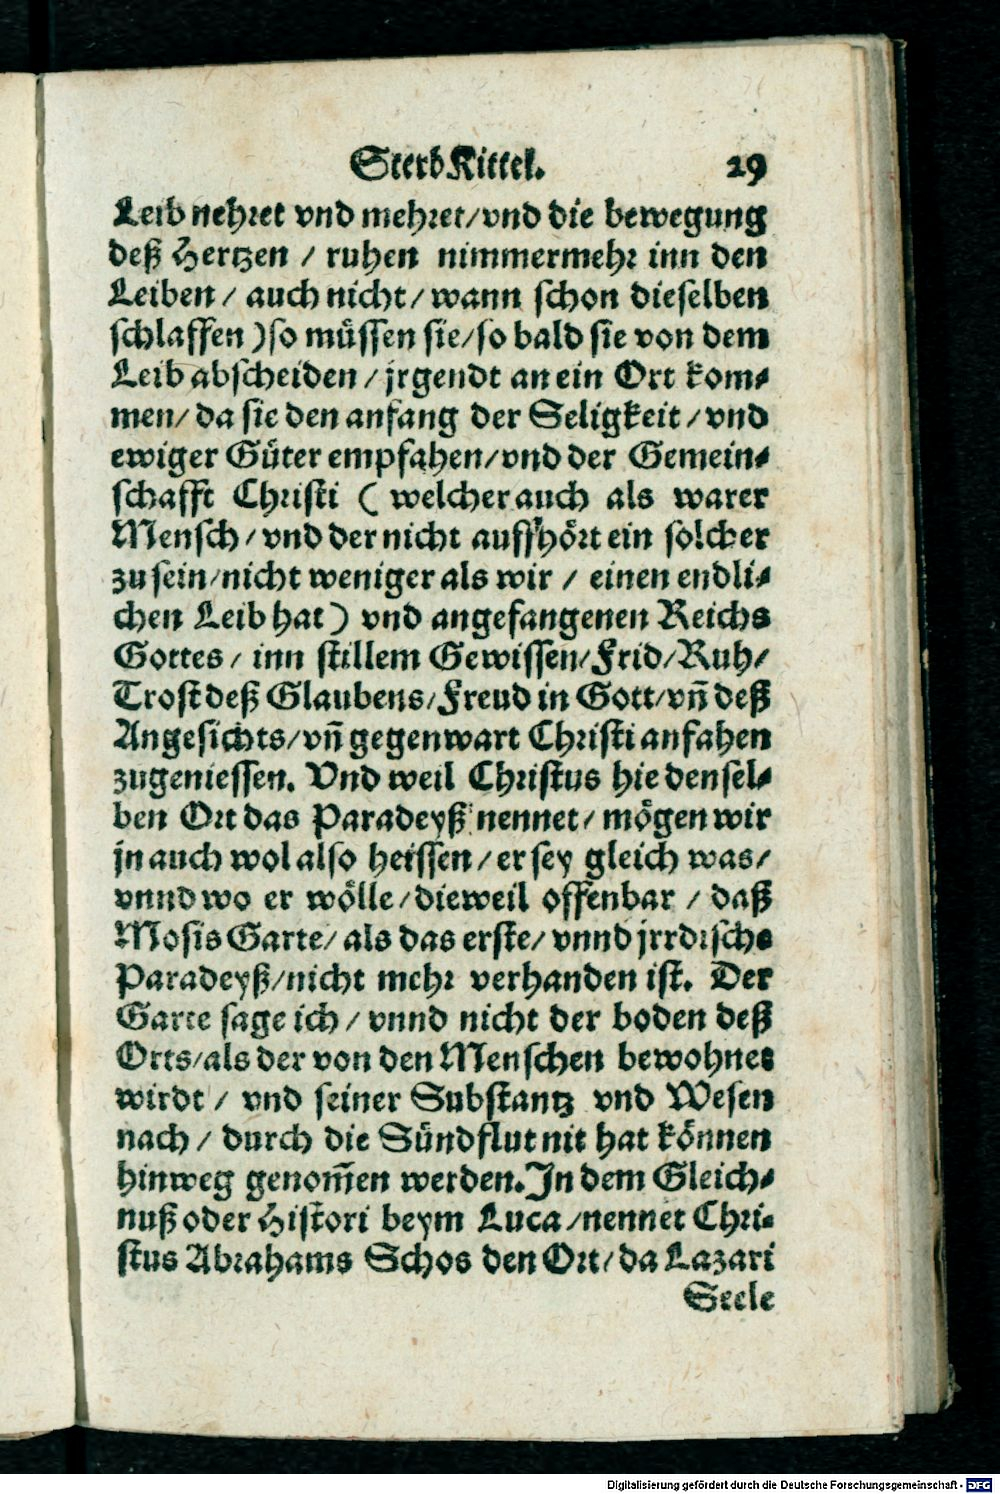 SterbKittel. 29
Leib nehret vnd mehret/vnd die bewegung
deß Hertzen / ruhen nimmermehr inn den
Leiben/ auch nicht/ wann schon dieselben
schlaffen )so müssen sie/so bald sie von dem
Leib abscheiden /jrgendt an ein Ort kom⸗
men/ da sie den anfang der Seligkeit /vnd
ewiger Güter empfahen/vnd der Gemein⸗
schafft Christi ( welcher auch als warer
Mensch/vnd der nicht auffhört ein solcher
zu sein/nicht weniger als wir / einen endli⸗
chen Leib hat) vnd angefangenen Reichs
Gottes/ inn stillem Gewissen/Frid/Ruh/
Trost deß Glaubens/Freud in Gott/vñ deß
Angesichts/vñ gegenwart Christi anfahen
zugeniessen. Vnd weil Christus hie densel⸗
ben Ort das Paradeyß nennet/ mögen wir
jn auch wol also heissen/er sey gleich was/
vnnd wo er wölle/dieweil offenbar / daß
Mosis Garte/ als das erste/ vnnd jrrdische
Paradeyß/nicht mehr verhanden ist. Der
Garte sage ich / vnnd nicht der boden deß
Orts/als der von den Menschen bewohnet
wirdt / vnd seiner Substantz vnd Wesen
nach / durch die Sündflut nit hat können
hinweg genom̃en werden. In dem Gleich⸗
nuß oder Histori beym Luca /nennet Chri⸗
stus Abrahams Schos den Ort/da Lazari
Seele
Digitalisierung gefördert durch die Deutsche Forschungsgemeinschaft - DFG